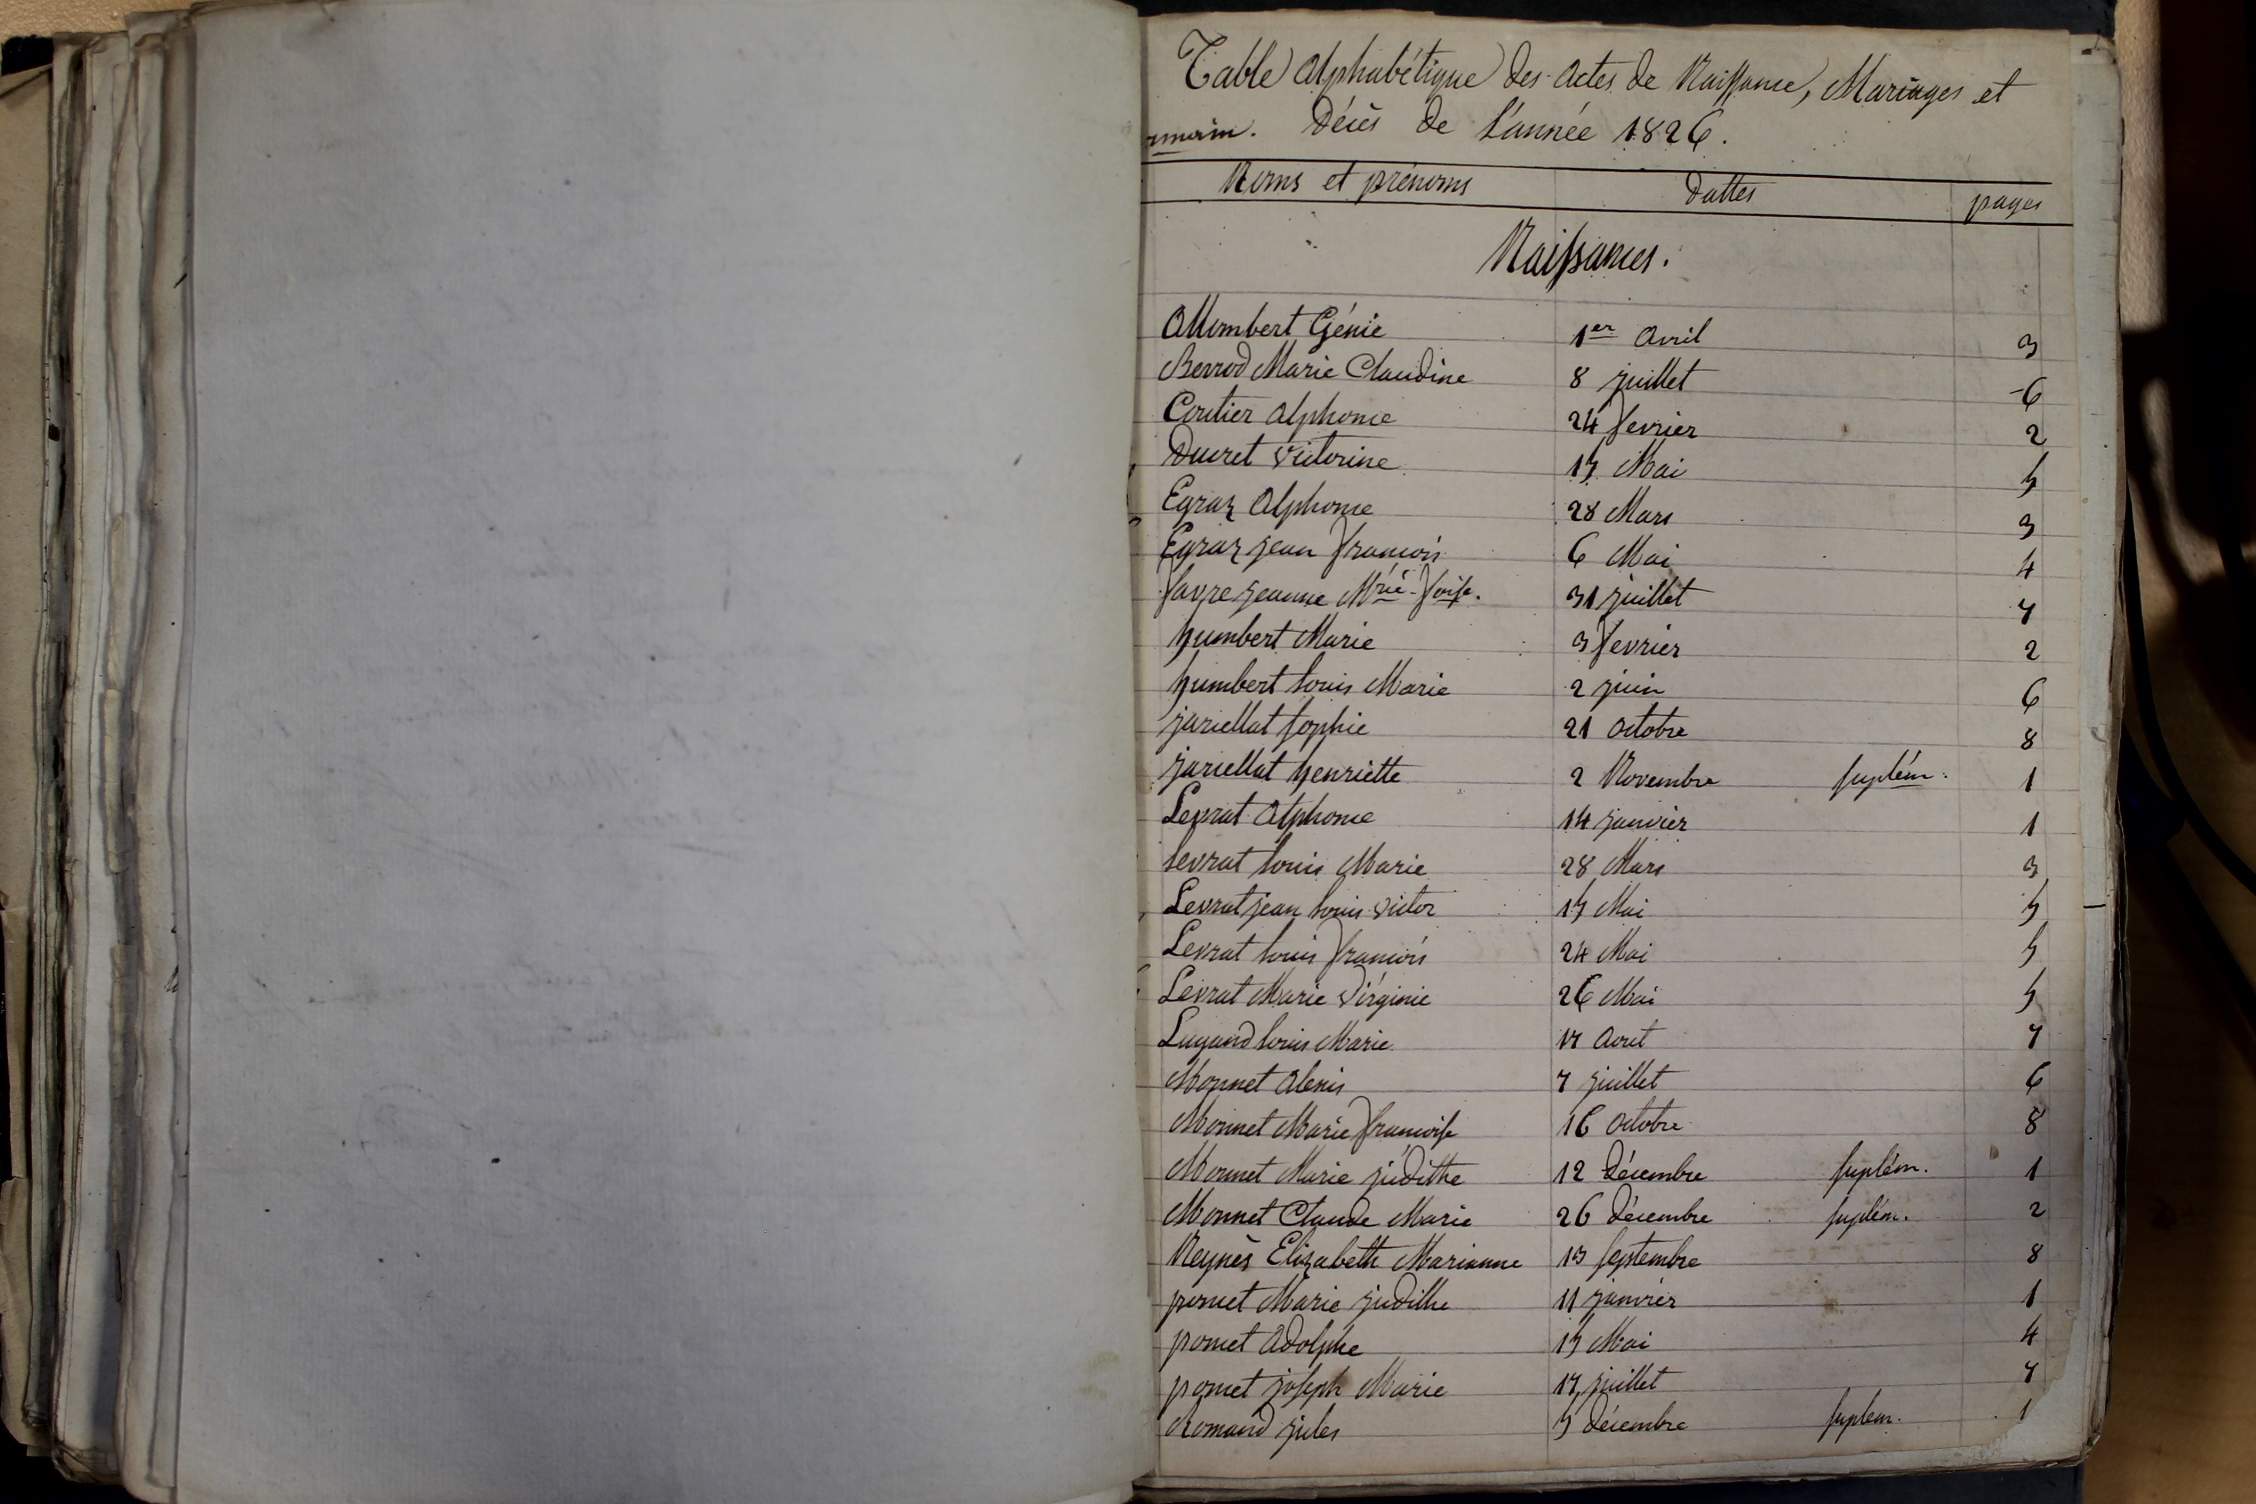 Table Alphabétique des Actes de Naissance, Mariages et
Décès de L'année 1826.
Noms et prénoms dattes pages
Naissances.
Allombert Génie 1er Avril 3
Berrod Marie Claudine 8 juillet 6
Coutier Alphonse 24 fevrier 2
Ducret Victorine 15 Mai 5
Egraz Alphonse 28 Mars 3
Egraz jean françois 6 Mai 4
favre jeanne Mrie foise. 31 juillet 7
humbert Marie 3 fevrier 2
humbert Louis Marie 2 juin 6
jariellat Sophie 21 Octobre 8
jariellat henriette 2 Novembre Suplém. 1
Levrat Alphonse 14 janvier 1
Levrat Louis Marie 28 Mars 3
Levrat jean Louis Victor 15 Mai 5
Levrat Louis françois 24 Mai 5
Levrat Marie Virginie 26 Mai 5
Lugand Louis Marie 17 Aout 7
Monnet Alexis 7 juillet 6
Monnet Marie françoise 16 Octobre 8
Monnet Marie judithe 12 Décembre Suplém. 1
Monnet Claude Marie 26 Décembre Suplém. 2
Neyrès Elizabeth Marianne 13 Septembre 8
poncet Marie judithe 11 janvier 1
poncet Adolphe 15 Mai 4
poncet joseph Marie 17 juillet 7
Romand jules 5 Décembre Suplem. 1